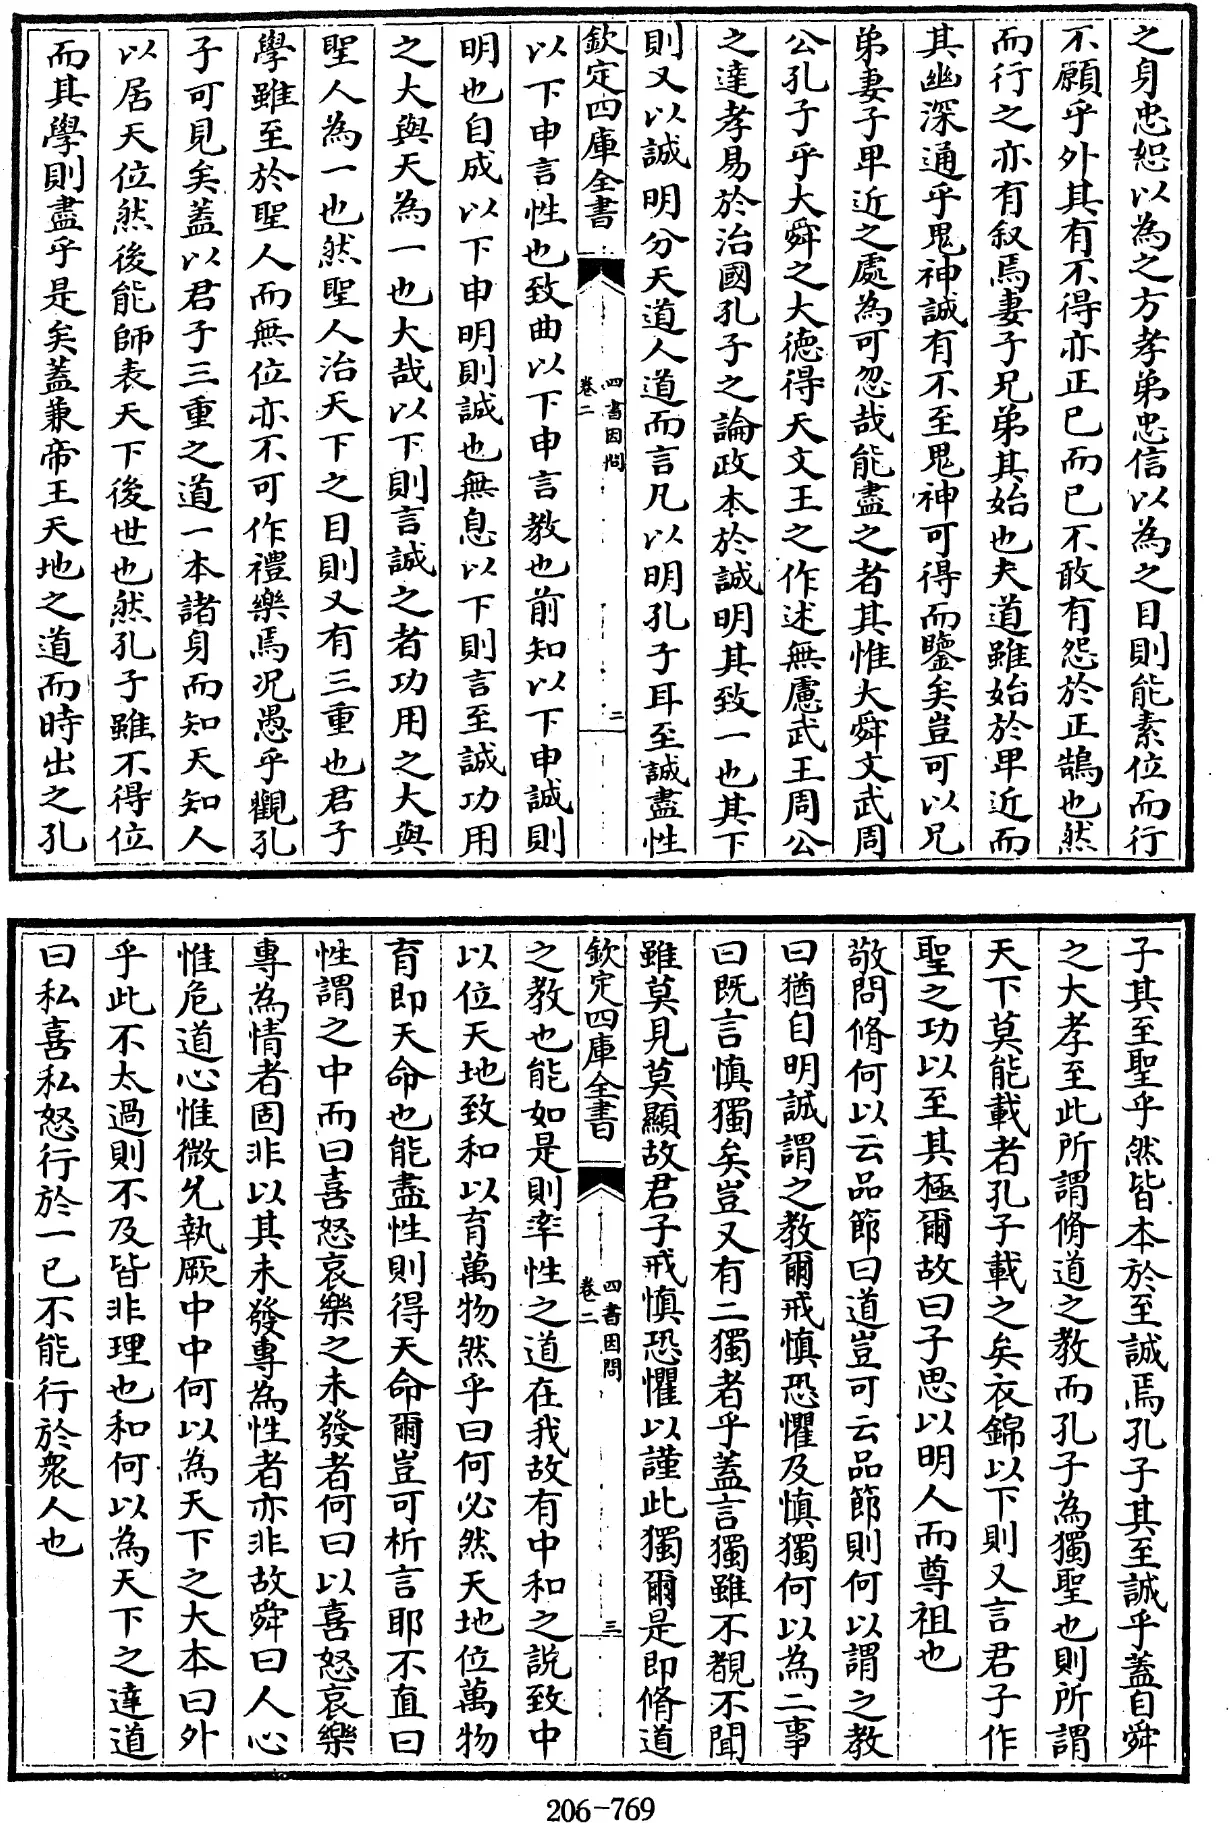 之身忠恕以為之方孝弟忠信以為之目則能素位而行
不願乎外其有不得亦正已而已不敢有怨於正鵠也然
而行之亦有叙焉妻子兄弟其始也夫道雖始於卑近而
其幽深通乎鬼神誠有不至鬼神可得而鑒矣豈可以兄
弟妻子卑近之處為可忽哉能盡之者其惟大舜文武周
公孔子乎大舜之大德得天文王之作述無慮武王周公
之達孝易於治國孔子之論政本於誠明其致一也其下
則又以誠明分天道人道而言凡以明孔子耳至誠盡性
欽定四庫全書
四書因問
卷二
二
以下申言性也致曲以下申言教也前知以下申誠則
明也自成以下申明則誠也無息以下則言至誠功用
之大與天為一也大哉以下則言誠之者功用之大與
聖人為一也然聖人治天下之目則又有三重也君子
學雖至於聖人而無位亦不可作禮樂焉况愚乎觀孔
子可見矣蓋以君子三重之道一本諸身而知天知人
以居天位然後能師表天下後世也然孔子雖不得位
而其學則盡乎是矣蓋兼帝王天地之道而時出之孔
子其至聖乎然皆本於至誠焉孔子其至誠乎蓋自舜
之大孝至此所謂脩道之教而孔子為獨聖也則所謂
天下莫能載者孔子載之矣衣錦以下則又言君子作
聖之功以至其極爾故曰子思以明人而尊祖也
敬問脩何以云品節曰道豈可云品節則何以謂之教
曰猶自明誠謂之教爾戒慎恐懼及慎獨何以為二事
曰既言慎獨矣豈又有二獨者乎蓋言獨雖不覩不聞
雖莫見莫顯故君子戒慎恐懼以謹此獨爾是即脩道
欽定四庫全書
四書因問
卷二
三
之教也能如是則率性之道在我故有中和之說致中
以位天地致和以育萬物然乎曰何必然天地位萬物
育即天命也能盡性則得天命爾豈可析言耶不直曰
性謂之中而曰喜怒哀樂之未發者何曰以喜怒哀樂
專為情者固非以其未發專為性者亦非故舜曰人心
惟危道心惟微允執厥中中何以為天下之大本曰外
乎此不太過則不及皆非理也和何以為天下之達道
曰私喜私怒行於一已不能行於衆人也
206-769